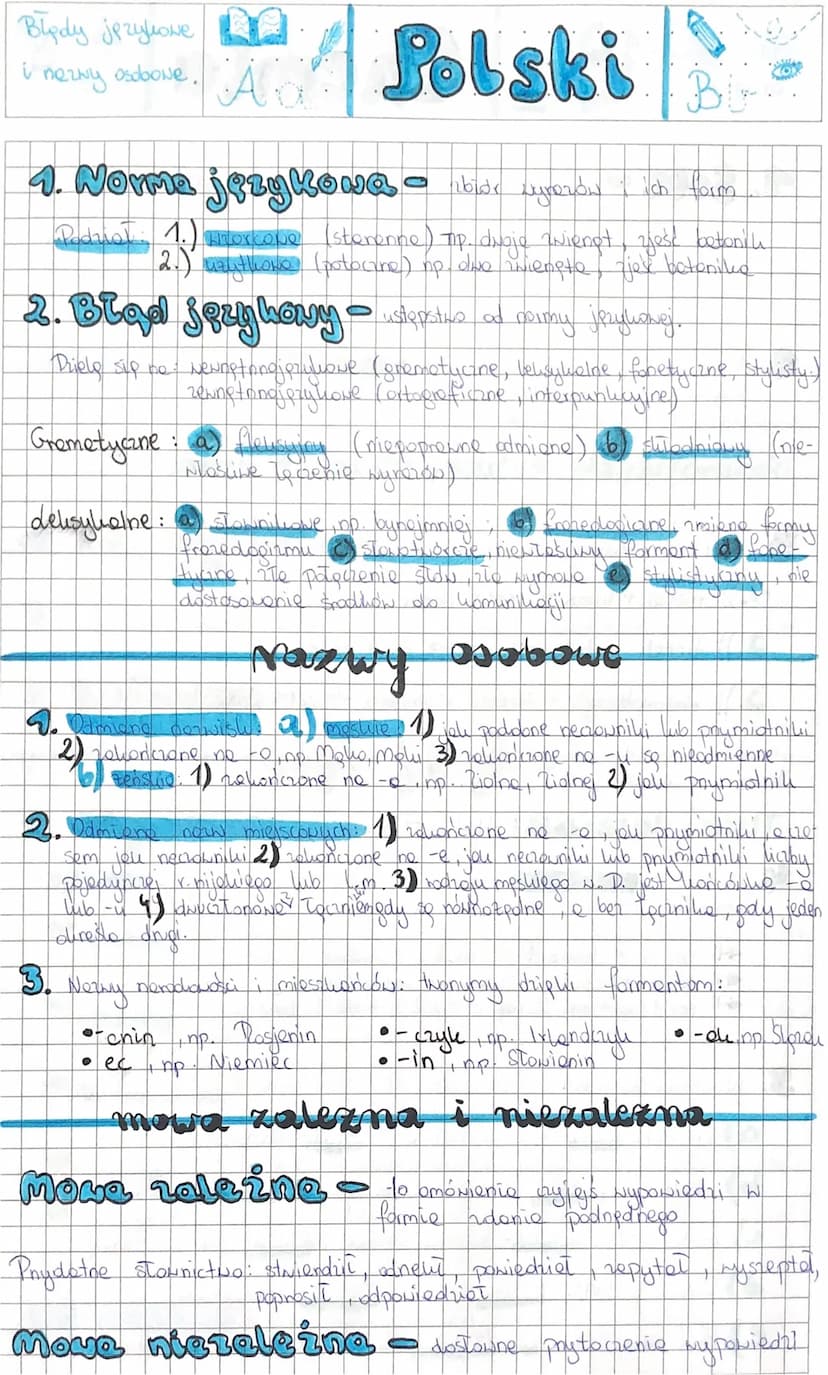 Błędy językowe
i nazwy osobowe.
A a
Polski
B b
1. Norma językowa - zbiór wyrazów i ich form
Podział: 1.) wzorcowe (staranne) np. dwoje zwierząt, zjeść batonik
2.) użytkowe (potoczne) np. dwa zwierzęta, zjeść batonika
2. Błąd językowy - ustępstwo od normy językowej.
Dzielą się na: wewnątrznojęzykowe (gramatyczne, leksykalne, fonetyczne, stylisty.)
zewnątrznojęzykowe (ortograficzne, interpunkcyjne)
Gramatyczne: a) fleksyjny (niepoprawna odmiana) b) składniowy (nie-
właściwe łączenie wyrazów)
Leksykalne: a) słownikowe, np. bynajmniej; b) frazeologiczne, zmiana formy
frazeologizmu c) słowotwórcze, niewłaściwy formant d) fone-
tyczne, złe połączenie słów, zła wymowa e) stylistyczny, nie
dostosowanie środków do komunikacji
Nazwy osobowe
1. Odmiana nazwisk: a) męskie 1) jak podobne rzeczowniki lub przymiotniki
2) zakończone na -o, np. Moko, Moki 3) zakończone na -u są nieodmienne
b) żeńskie: 1) zakończone na -a, np. Ziolna, Ziolnej 2) jak przymiotnik
2. Odmiana nazw miejscowych: 1) zakończone na -a, jak przymiotniki, a cza-
sem jak rzeczowniki 2) zakończone na -e, jak rzeczowniki lub przymiotniki liczby
pojedynczej r. nijakiego lub l.m. 3) rodzaju męskiego w D. jest końcówka -a
lub -u 4) dwuczłonowe z łącznikiem gdy są równorzędne, a bez łącznika, gdy jeden
określa drugi.
3. Nazwy narodowości i mieszkańców: tworzymy dzięki formantom:
• -anin, np. Rosjanin • -czyk, np. Irlandczyk • -ak np. Ślązak
• ec, np. Niemiec • -in, np. Słowianin
mowa zależna i niezależna
Mowa zależna - to omówienie czyjejś wypowiedzi w
formie zdania podrzędnego
Przydatne słownictwo: stwierdził, odrzekł, powiedział, zapytał, wyszeptał,
poprosił, odpowiedział
Mowa niezależna - dosłowne przytoczenie wypowiedzi